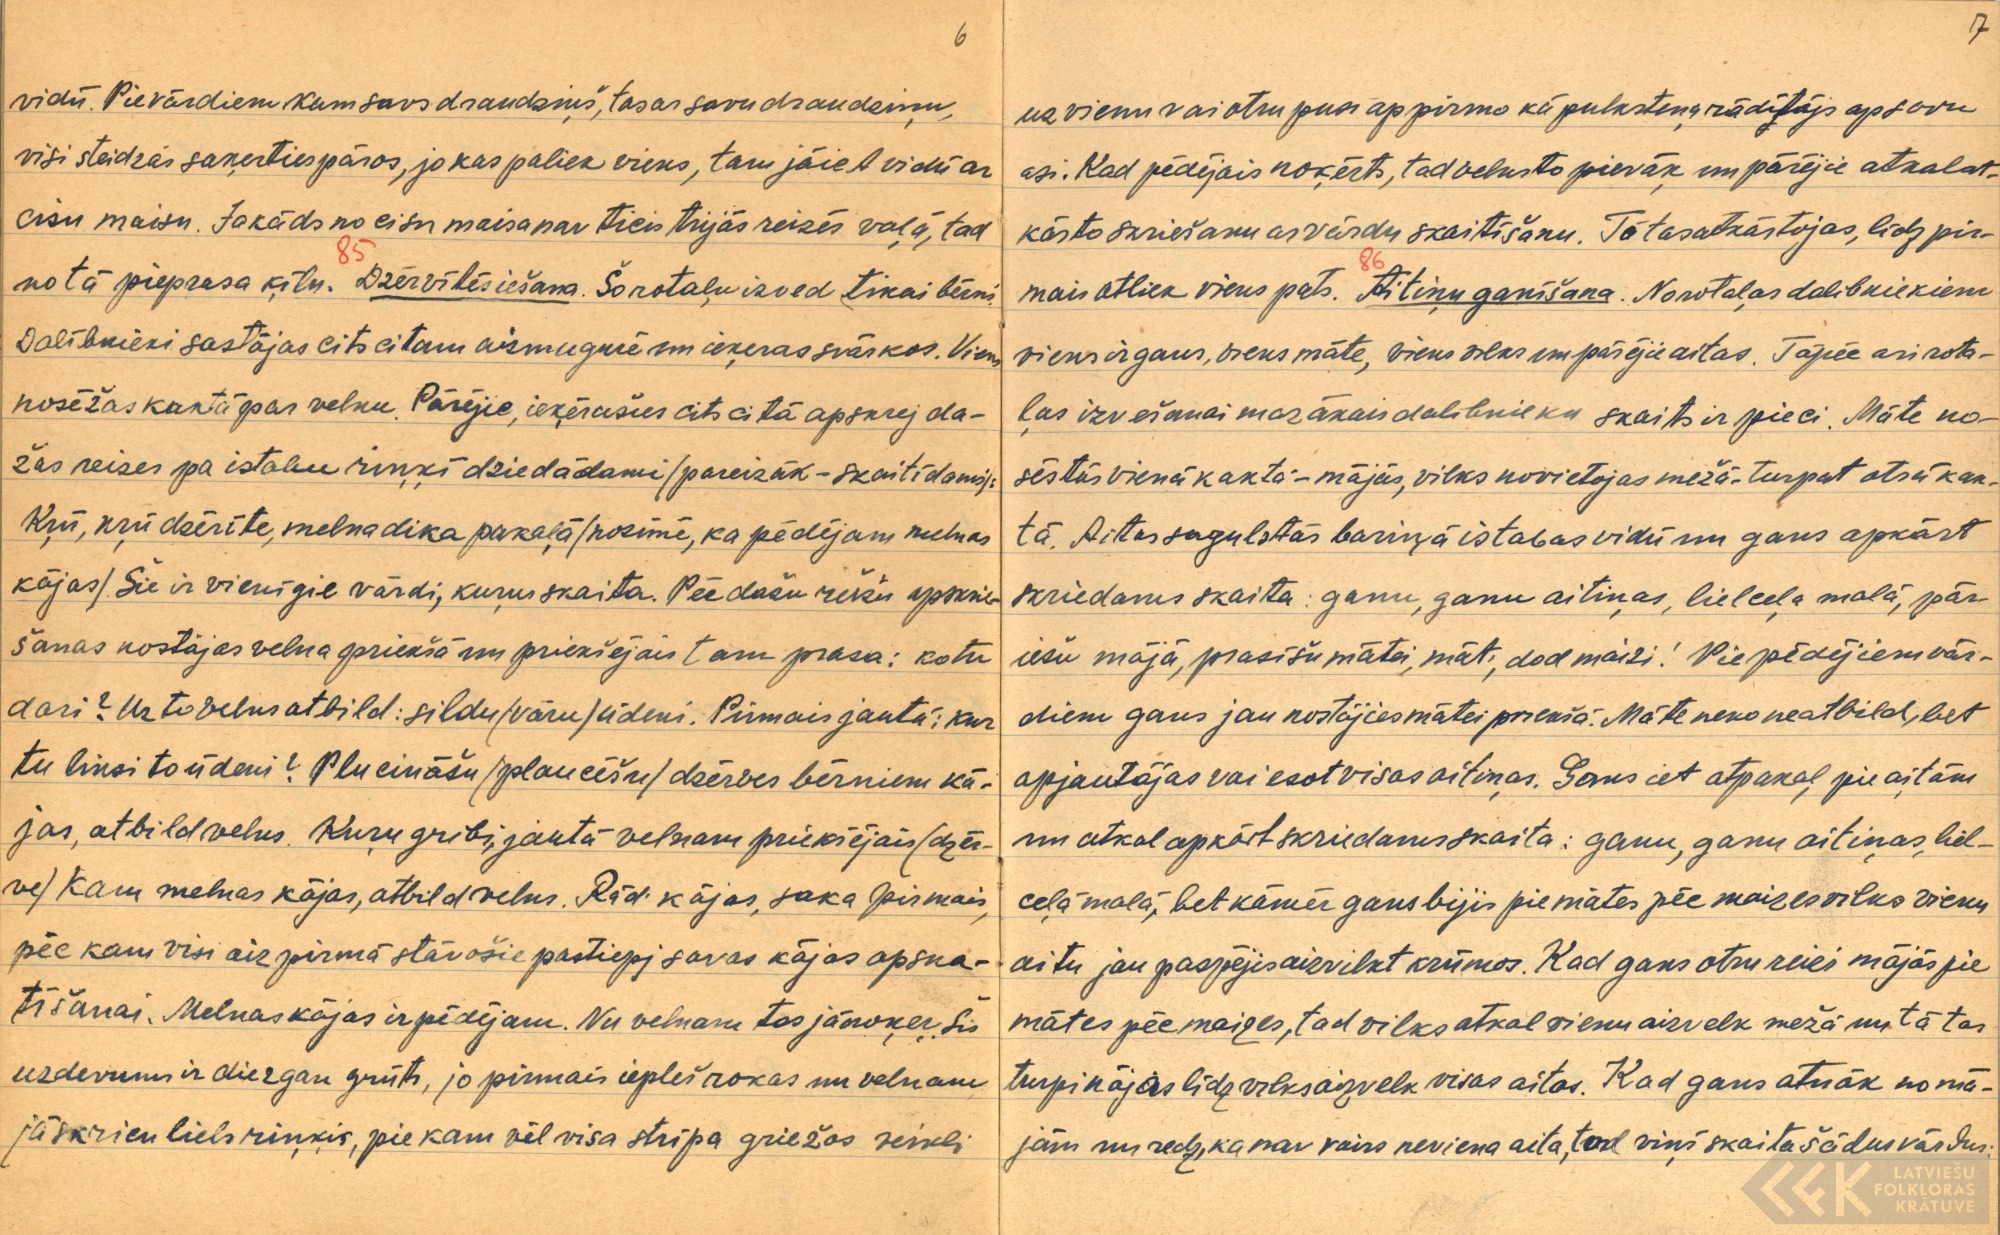 6
vidū. Pie vārdiem kam savs draudziņš, tas ar savu draudziņu,
visi steidzās saķerties pāros, jo kas paliek viens, tam jāiet vidū ar
cisu maisu. Ja kāds no cisu maisa nav ticis trijās reizēs vaļā, tad
85
no tā pieprasa ķīlu. Dzērvītēs iešana. Šo rotaļu izved tikai bērni.
Dalībnieki sastājas cits citam aizmugurē un ieķeras svārkos. Viens
nosēžas kaktā par velnu. Pārējie, ieķērušies cits citā apskrej da-
žas reizes pa istabu riņķī dziedādami/pareizāk - skaitīdami/:
Kŗū, kŗū dzērīte, melna dika pakaļā/nozīmē, ka pēdējam melnas
kājas/ Šie ir vienīgie vārdi, kuŗus skaita. Pēc dažu reižu apskrie-
šanas nostājas velna priekšā un priekšējais tam prasa: ko tu
dari? Uz to velns atbild: sildu/vāru/ūdeni. Pirmais jautā: kur
tu liesi to ūdeni? Plucināšu/plaucēšu/ dzērves bērniem kā-
jas, atbild velns. Kuŗu gribi, jautā velnam priekšējais/dzēr-
ve/ Kam melnas kājas, atbild velns. Rādi kājas, saka pirmais,
pēc kam visi aiz pirmā stāvošie pastiepj savas kājas apska-
tīšanai. Melnas kājas ir pēdējam. Nu velnam tas jānoķeŗ. Šis
uzdevums ir diezgan grūts, jo pirmais iepleš rokas un velnam
jāskrien liels riņķis, pie kam vēl visa strīpa griežas veikli
7
uz vienu vai otru pusi ap pirmo kā pulksteņa rādītājs ap savu
asi. Kad pēdējais noķerts, tad velns to pievāk un pārējie atkal at-
kārto skriešanu ar vārdu skaitīšanu. Tā tas atkārtojas, līdz pir-
86
mais atliek viens pats. Aitiņu ganīšana. No rotaļas dalībniekiem
viens ir gans, viens māte, viens vilks un pārējie aitas. Tāpēc arī rota-
ļas izvešanai mazākais dalībnieku skaits ir pieci. Māte no-
sēstās vienā kaktā - mājās, vilks novietojas mežā - turpat otrā kak-
tā. Aitas sagulstās bariņā istabas vidū un gans apkārt
skriedams skaita: ganu, ganu aitiņas, lielceļa malā, pār-
iešu mājā, prasīšu mātei, māt, dod maizi! Pie pēdējiem vār-
diem gans jau nostājies mātei priekšā. Māte neko neatbild, bet
apjautājas vai esot visas aitiņas. Gans iet atpakaļ pie aitām
un atkal apkārt skriedams skaita: ganu, ganu aitiņas, liel-
ceļa malā, bet kāmēr gans bijis pie mātes pēc maizes vilks vienu
aitu jau paspējis aizvilkt krūmos. Kad gans otru reizi mājās pie
mātes pēc maizes, tad vilks atkal vienu aizvelk mežā un tā tas
turpinājas līdz vilks aizvelk visas aitas. Kad gans atnāk no mā-
jām un redz, ka nav vairs neviena aita, tad viņš skaita šādus vārdus:
LATVIEŠU
FOLKLORAS
KRĀTUVE